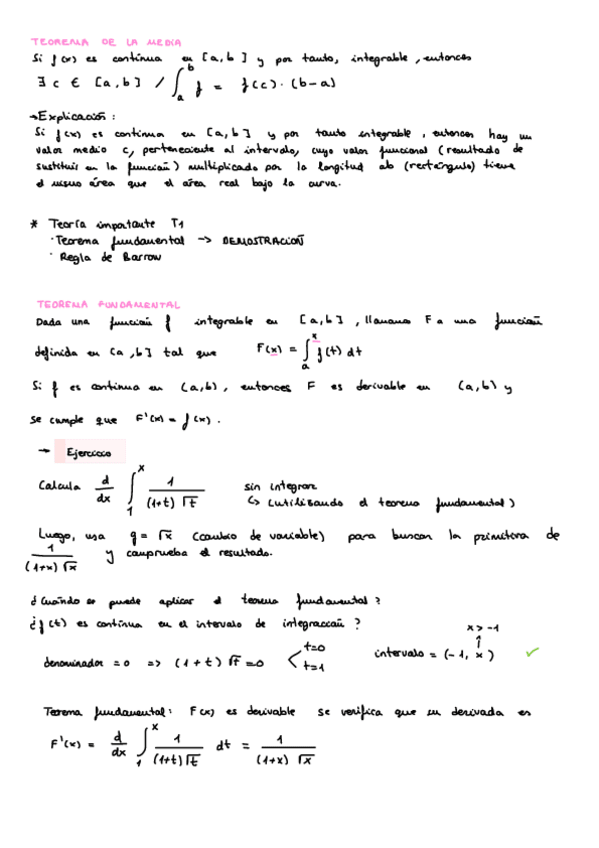 TEOREMA DE LA MEDIA
Si f(x) es continua en [a,b] y por tanto, integrable, entonces
∃ c ∈ [a,b] / ∫_a^b f = f(c)·(b-a)
→ Explicación:
Si f(x) es continua en [a,b] y por tanto integrable, entonces hay un
valor medio c, perteneciente al intervalo, cuyo valor funcional (resultado de
sustituir en la función) multiplicado por la longitud ab (rectángulo) tiene
el mismo área que el área real bajo la curva.
* Teoría importante T1
· Teorema fundamental → DEMOSTRACIÓN
· Regla de Barrow
TEOREMA FUNDAMENTAL
Dada una función f integrable en [a,b], llamamos F a una función
definida en [a,b] tal que F(x) = ∫_a^x f(t) dt
Si f es continua en (a,b), entonces F es derivable en (a,b) y
se cumple que F'(x) = f(x).
→ Ejercicio
Calcula d/dx ∫_1^x 1/((1+t)√t) sin integrar
↳ (utilizando el teorema fundamental)
Luego, usa q = √x (cambio de variable) para buscar la primitiva de
1/((1+x)√x) y comprueba el resultado.
¿Cuándo se puede aplicar el teorema fundamental?
¿f(t) es continua en el intervalo de integración? x > -1
denominador = 0 => (1+t)√t = 0 < t=0 t=1 intervalo = (-1, x) ✓
Teorema fundamental: F(x) es derivable se verifica que su derivada es
F'(x) = d/dx ∫_1^x 1/((1+t)√t) dt = 1/((1+x)√x)